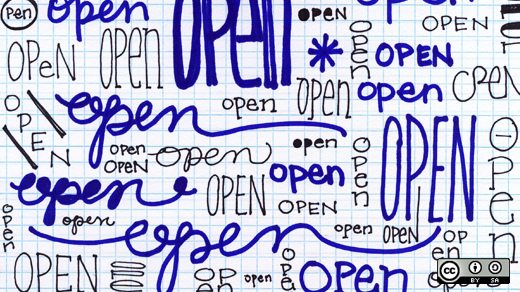 Pen
open
OPeN
open
OPEN
OPeN
open
open
OPEN
OPEN
open
open
OPEN
open
OPEN
open
open
open
open
open
OPEN
open
open
OPEN
open
open
OPEN
OPEN
open
open
OPEN
open
open
open
open
OPEN
OPEN
open
open
open
open
CC BY SA